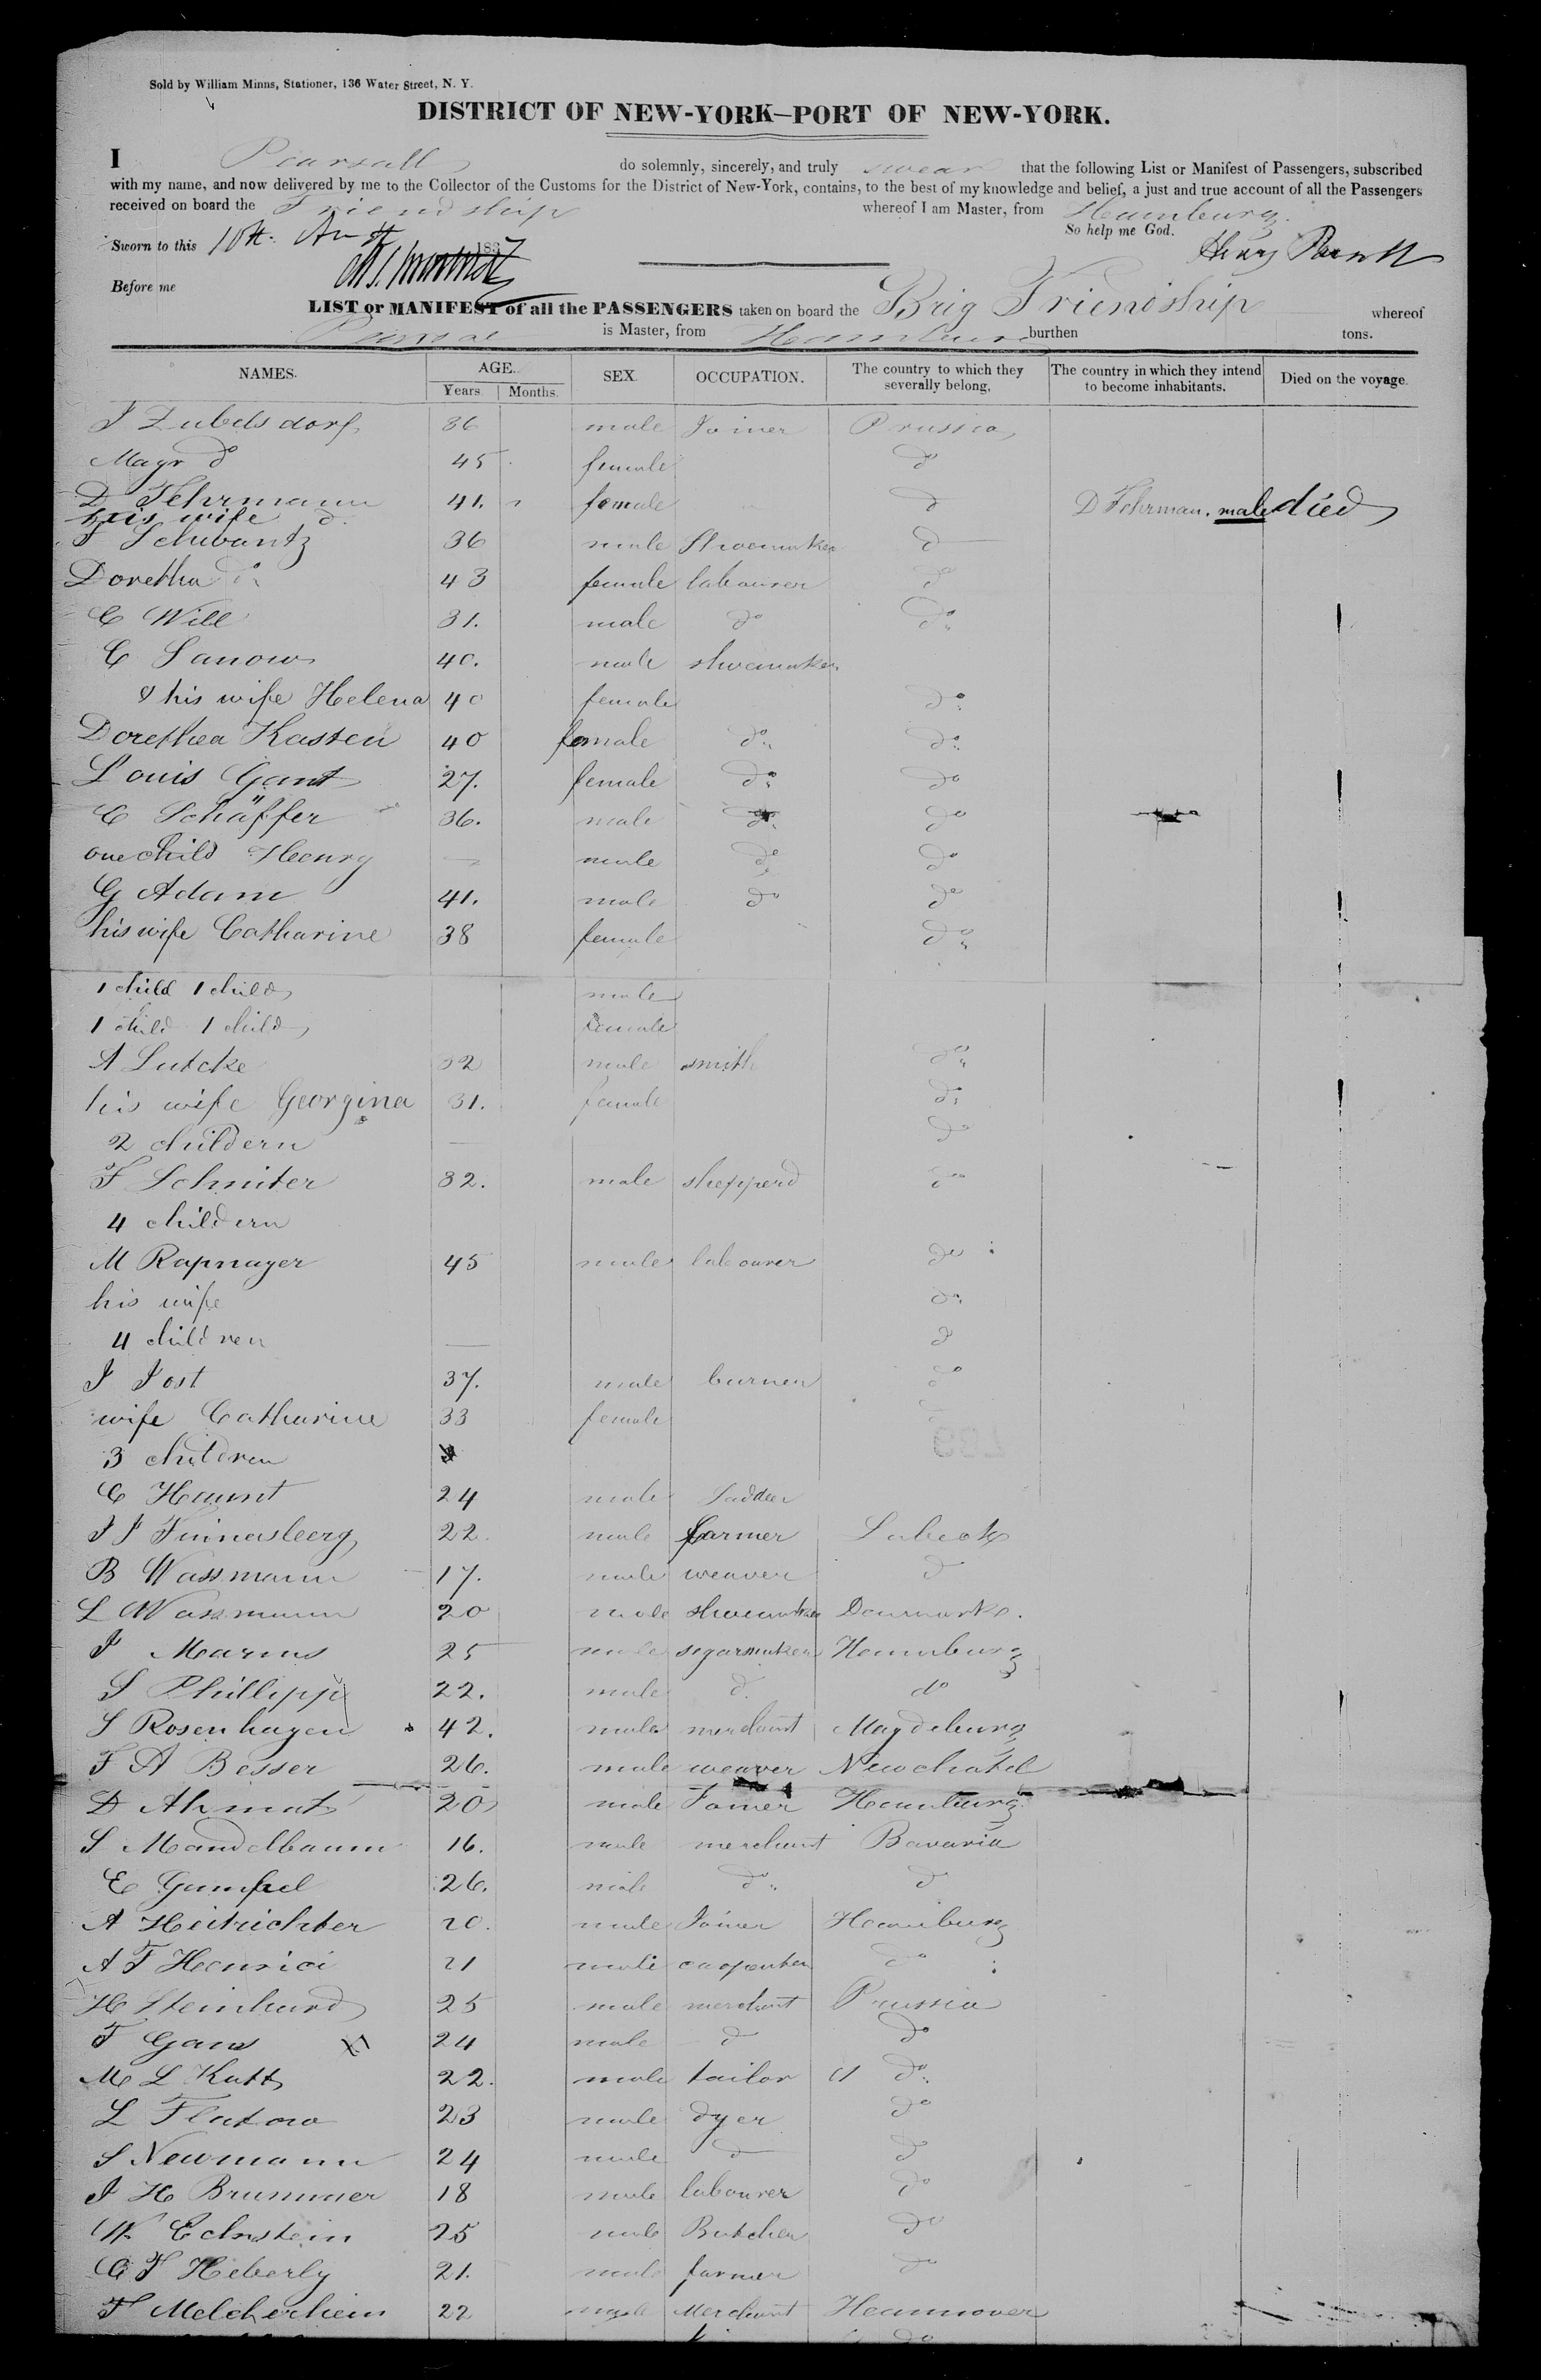 Sold by William Minns, Stationer, 136 Water Street, N. Y.
DISTRICT OF NEW-YORK—PORT OF NEW-YORK.
I Pearsall do solemnly, sincerely, and truly swear that the following List or Manifest of Passengers, subscribed
with my name, and now delivered by me to the Collector of the Customs for the District of New-York, contains, to the best of my knowledge and belief, a just and true account of all the Passengers
received on board the Friendship whereof I am Master, from Hamburg.
So help me God.
Sworn to this 10th 1837 Henry
Before me
LIST or MANIFEST of all the PASSENGERS taken on board the Brig Friendship whereof
is Master, from Hamburg burthen tons.
NAMES. AGE. Years. Months. SEX. OCCUPATION. The country to which they severally belong. The country in which they intend to become inhabitants. Died on the voyage.
J Zubelsdorf 36 male Joiner Prussia
Mayr do 45 female do
D Fehrmann 41. female do D Fehrman. male died
his wife do
F Schwantz 36 male Shoemaker do
Doretha do 43 female labourer do
C Will 31. male do do
C Sanow 40. male shoemaker
& his wife Helena 40 female do
Dorethea Kasten 40 female do do
Louis Gant 27. female do do
C Schäffer 36. male do do
one child Henry — male do do
G Adam 41. male do do
his wife Catharine 38 female do
1 child 1 child male
1 child 1 child female
A Lutcke 32 male smith do
his wife Georgina 31. female do
2 childern — do
F Schniter 32. male shepperd do
4 childern
M Rapmayer 45 male labourer do
his wife do
4 children — do
J Jost 37. male burner do
wife Catharine 33 female do
3 children
C Haunt 24 male Saddler
J J Finnesberg 22. male farmer Lubeck
B Wassmann 17. male weaver do
L Wassmann 20 male shoemaker Denmark.
J Marms 25 male segarmaker Hamburg
S Phillipp 22. male do do
S Rosenhagen 42. male merchant Magdeburg
F A Besser 26. male weaver Newchatel
D Ahmat 20 male Joiner Hamburg
S Mandelbaum 16. male merchant Bavaria
E Gumpel 26. male do do
A Heitrichter 20. male Joiner Hamburg
A F Henrici 21 male carpenter do
H Steinhard 25 male merchant Prussia
F Gans 24 male do do
M L Katt 22. male tailor do
L Flatow 23 male dyer do
S Newmann 24 male do do
J H Brummer 18 male labourer do
W Echnstein 25 male Butcher do
C F Heberly 21. male farmer do
F Melcherheim 22 male Merchant Hannover
do